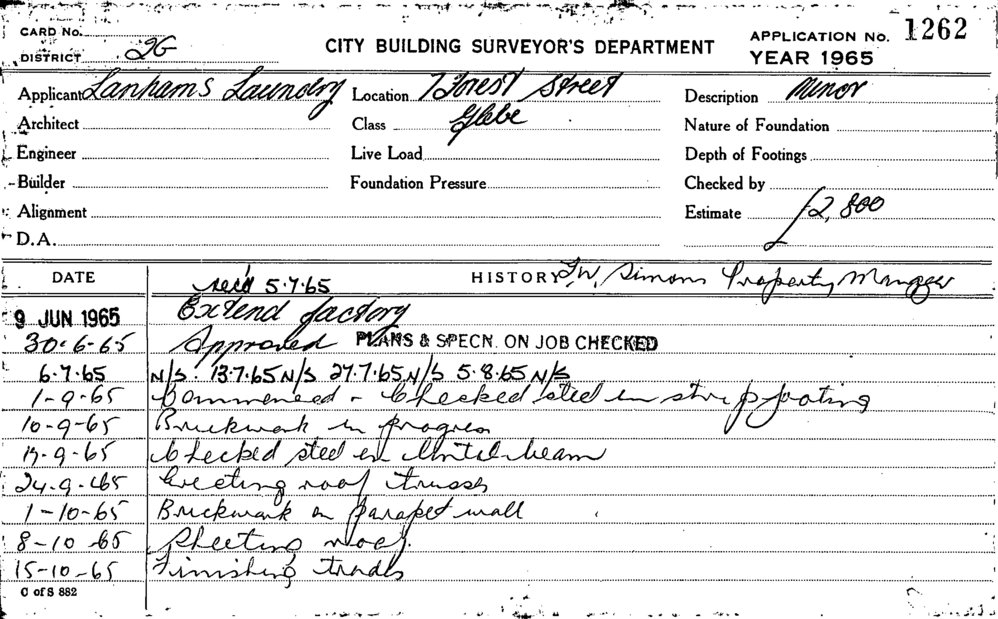 CARD No.
DISTRICT 2G
CITY BUILDING SURVEYOR'S DEPARTMENT
APPLICATION No. 1262
YEAR 1965
Applicant Lanhams Laundry
Location 7 Forest Street
Description Minor
Architect
Class Glebe
Nature of Foundation
Engineer
Live Load
Depth of Footings
Builder
Foundation Pressure
Checked by
Alignment
Estimate £2,800
D.A.
DATE
HISTORY F.W. Simons Property Manager
rec'd 5.7.65
9 JUN 1965 Extend factory
30-6-65 Approved PLANS & SPECN. ON JOB CHECKED
6.7.65 N/S. 13.7.65 N/S 27.7.65 N/S 5.8.65 N/S
1-9-65 Commenced - Checked steel in strip footing
10-9-65 Brickwork in progress
-9-65 Checked steel in lintel beam
24-9-65 Erecting roof trusses
1-10-65 Brickwork on parapet wall
8-10-65 Sheeting roof.
15-10-65 Finishing trades
C of S 882